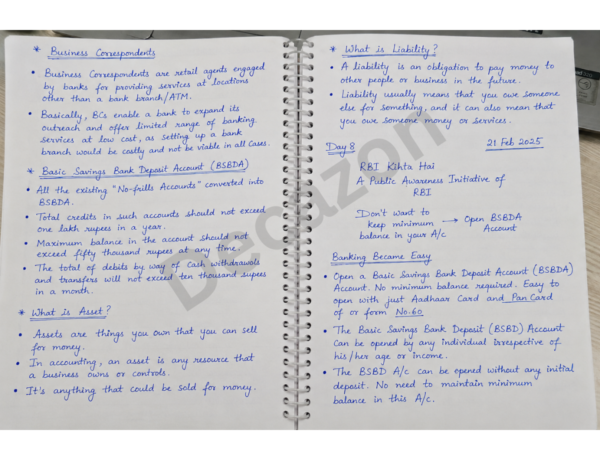 * Business Correspondents
• Business Correspondents are retail agents engaged
by banks for providing services at locations
other than a bank branch/ATM.
• Basically, BCs enable a bank to expand its
outreach and offer limited range of banking
services at low cost, as setting up a bank
branch would be costly and not be viable in all Cases.
* Basic Savings Bank Deposit Account (BSBDA)
• All the existing "No-frills Accounts" converted into
BSBDA.
• Total credits in such accounts should not exceed
one lakh rupees in a year.
• Maximum balance in the account should not
exceed fifty thousand rupees at any time.
• The total of debits by way of Cash withdrawals
and transfers will not exceed ten thousand rupees
in a month.
* What is Asset?
• Assets are things you own that you can sell
for money.
• In accounting, an asset is any resource that
a business owns or controls.
• It's anything that could be sold for money.
* What is Liability?
• A liability is an obligation to pay money to
other people or business in the future.
• Liability usually means that you owe someone
else for something, and it can also mean that
you owe someone money or services.
Day 8 21 Feb 2025
RBI Kihta Hai
A Public Awareness Initiative of
RBI
Don't want to
keep minimum → Open BSBDA
balance in your A/c Account
Banking Became Easy
• Open a Basic Savings Bank Deposit Account (BSBDA)
Account. No minimum balance required. Easy to
open with just Aadhaar Card and Pan Card
of or form No-60
• The Basic Savings Bank Deposit (BSBD) Account
Can be opened by any individual irrespective of
his/her age or income.
• The BSBD A/c can be opened without any initial
deposit. No need to maintain minimum
balance in this A/c.